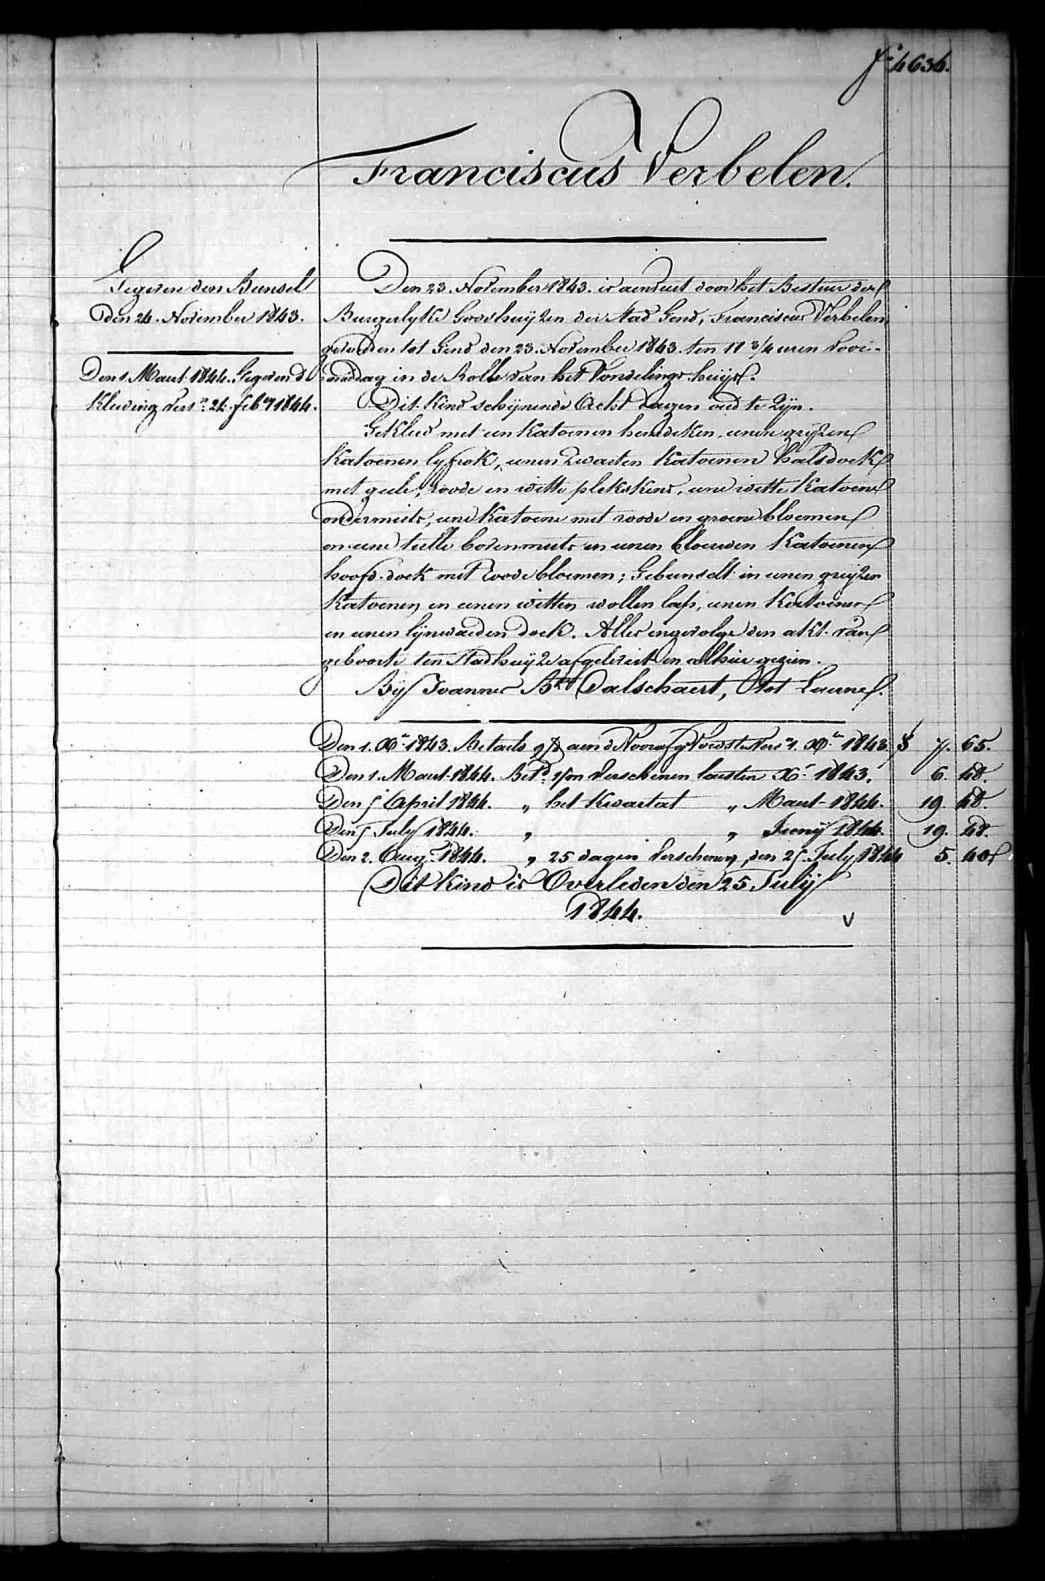 f° 4634.
Franciscus Verbelen.
Gegeven den Bunsel
den 24. November 1843.
Den 1. Maart 1844. Gegeven de
Kleeding vers.n 24 feb.ry 1844.
Den 23. November 1843. is aenveert door het Bestuur der
Burgerlyke Godshuyzen der Stad Gend, Franciscus Verbelen
gevonden tot Gend den 23. November 1843. ten 11 3/4 uren voor-
middag in de Rolle van het Vondelings huys.
Dit Kind schynende Acht dagen oud te zyn.
Gekleed met een Katoenen hemdeken, eenen gryzen
Katoenen lyfrok, eenen zwarten Katoenen halsdoek
met geele, roode en witte plekskens, eene witte Katoene
ondermuts, eene Katoene met roode en groene bloemen
en eene tulle bovenmuts en eenen blauwen Katoenen
hoofd-doek met roode bloemen; Gebunselt in eenen gryzen
Katoenen en eenen witten wollen lap, eenen Katoenen
en eenen lynwaeden doek. Alles ingevolge den akt van
geboorte ten Stadhuyze afgelevert en alhier gezien.
By Joannes B.te Dalschaert, tot Laerne.
Den 1. X.r 1843. Betaeld aen de Voorafg. Voedster Vers.n 1. X.r 1843. 7. 65.
Den 1. Maart 1844. Bet.d verschenen laesten X.r 1843. 6. 48.
Den 5 April 1844. „ het Kwartael „ Maart 1844. 19. 48.
Den 5 July 1844. „ „ Juny 1844. 19. 48.
Den 2. Aug.t 1844. „ 25 dagen verschenen den 25 July 1844 5. 40
Dit kind is Overleden den 25 July
1844.